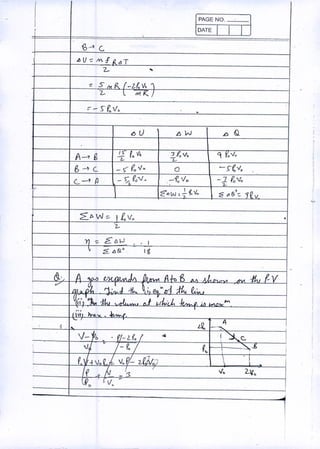 PAGE NO.
DATE
B → C
ΔU = n f R ΔT
2
= 5 nR (-2P₀V₀)
2 nR
= -5P₀V₀
ΔU ΔW ΔQ
A→B 15/2 P₀V₀ 3/2 P₀V₀ 9 P₀V₀
B→C -5P₀V₀ 0 -5P₀V₀
C→A -5/2 P₀V₀ -P₀V₀ -7/2 P₀V₀
ΣΔW = 1/2 P₀V₀ ΣΔQ⁺ = 9P₀V₀
ΣΔW = 1 P₀V₀
2
η = ΣΔW = 1
ΣΔQ⁺ 18
Q. A gas expands from A to B as shown on the P V
graph. Find the (i) eqⁿ of the line
(ii) the volume at which temp is maxᵐ.
(iii) max. temp.
2P₀ A
C
P₀ B
V₀ 2V₀
V-V₀ = P-2P₀
V₀ -P₀
P + V = 3
P₀ V₀